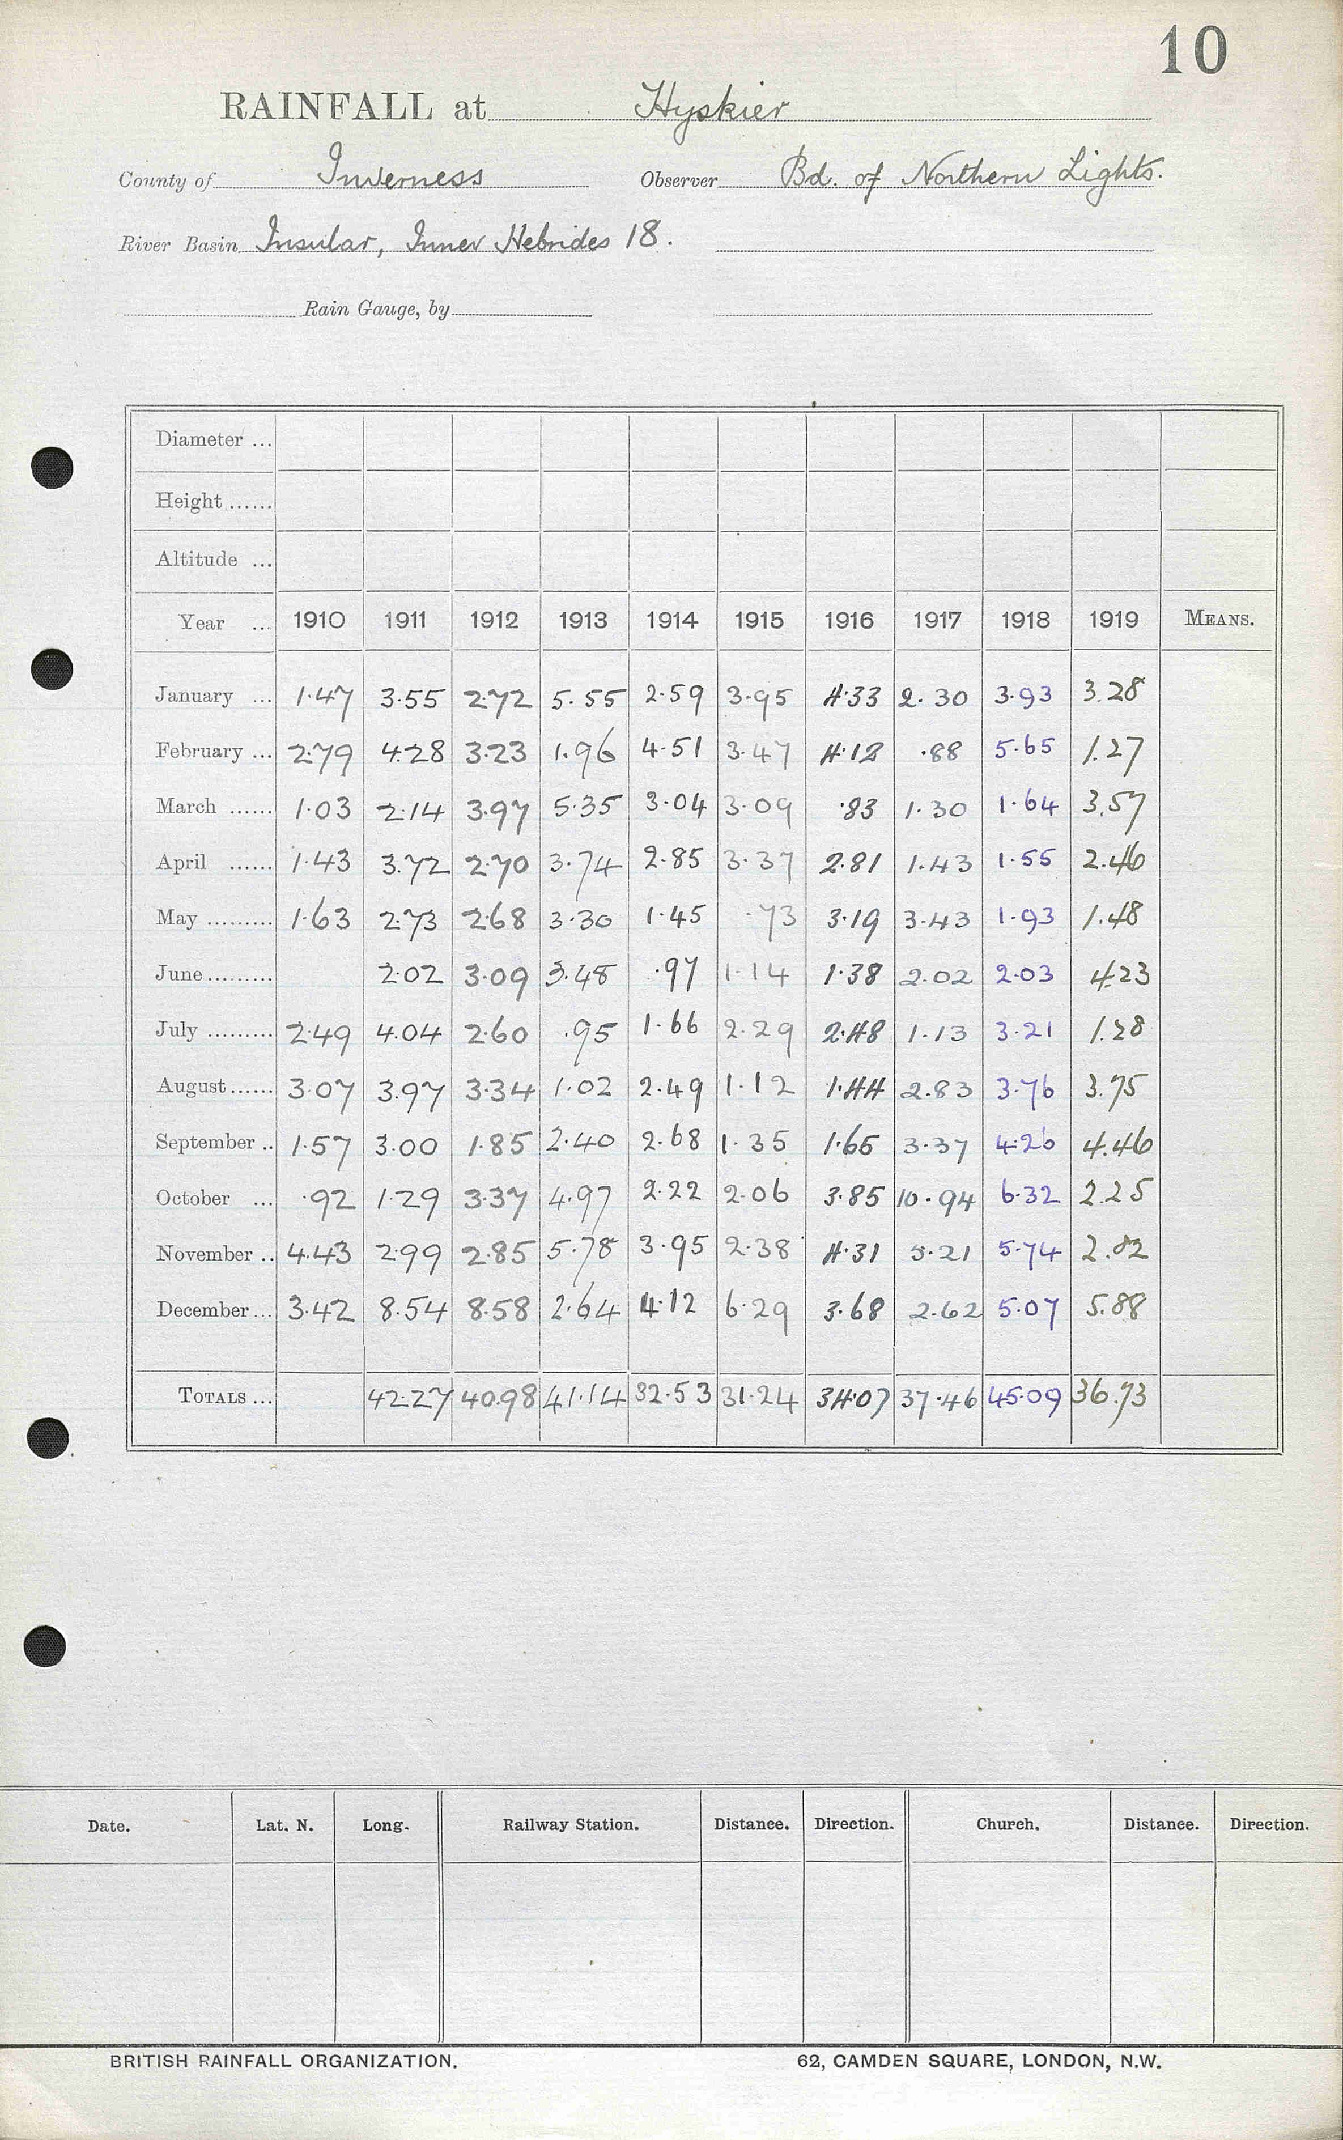 10
RAINFALL at Hyskier
County of Inverness Observer Bd. of Northern Lights.
River Basin Insular, Inner Hebrides 18.
Rain Gauge, by
Diameter ...
Height ......
Altitude ...
Year ... 1910 1911 1912 1913 1914 1915 1916 1917 1918 1919 MEANS.
January ... 1.47 3.55 2.72 5.55 2.59 3.95 4.33 2.30 3.93 3.28
February ... 2.79 4.28 3.23 1.96 4.51 3.47 4.12 .88 5.65 1.27
March ...... 1.03 2.14 3.97 5.35 3.04 3.09 .83 1.30 1.64 3.57
April ...... 1.43 3.72 2.70 3.74 2.85 3.37 2.81 1.43 1.55 2.46
May ......... 1.63 2.73 2.68 3.30 1.45 .73 3.19 3.43 1.93 1.48
June ......... 2.02 3.09 3.48 .97 1.14 1.38 2.02 2.03 4.23
July ......... 2.49 4.04 2.60 .95 1.66 2.29 2.48 1.13 3.21 1.28
August ...... 3.07 3.97 3.34 1.02 2.49 1.12 1.44 2.83 3.76 3.75
September .. 1.57 3.00 1.85 2.40 2.68 1.35 1.65 3.37 4.26 4.46
October ... .92 1.29 3.37 4.97 2.22 2.06 3.85 10.94 6.32 2.25
November .. 4.43 2.99 2.85 5.78 3.95 2.38 4.31 5.21 5.74 2.82
December ... 3.42 8.54 8.58 2.64 4.12 6.29 3.68 2.62 5.07 5.88
TOTALS ... 42.27 40.98 41.14 32.53 31.24 34.07 37.46 45.09 36.73
Date. Lat. N. Long. Railway Station. Distance. Direction. Church. Distance. Direction.
BRITISH RAINFALL ORGANIZATION. 62, CAMDEN SQUARE, LONDON, N.W.